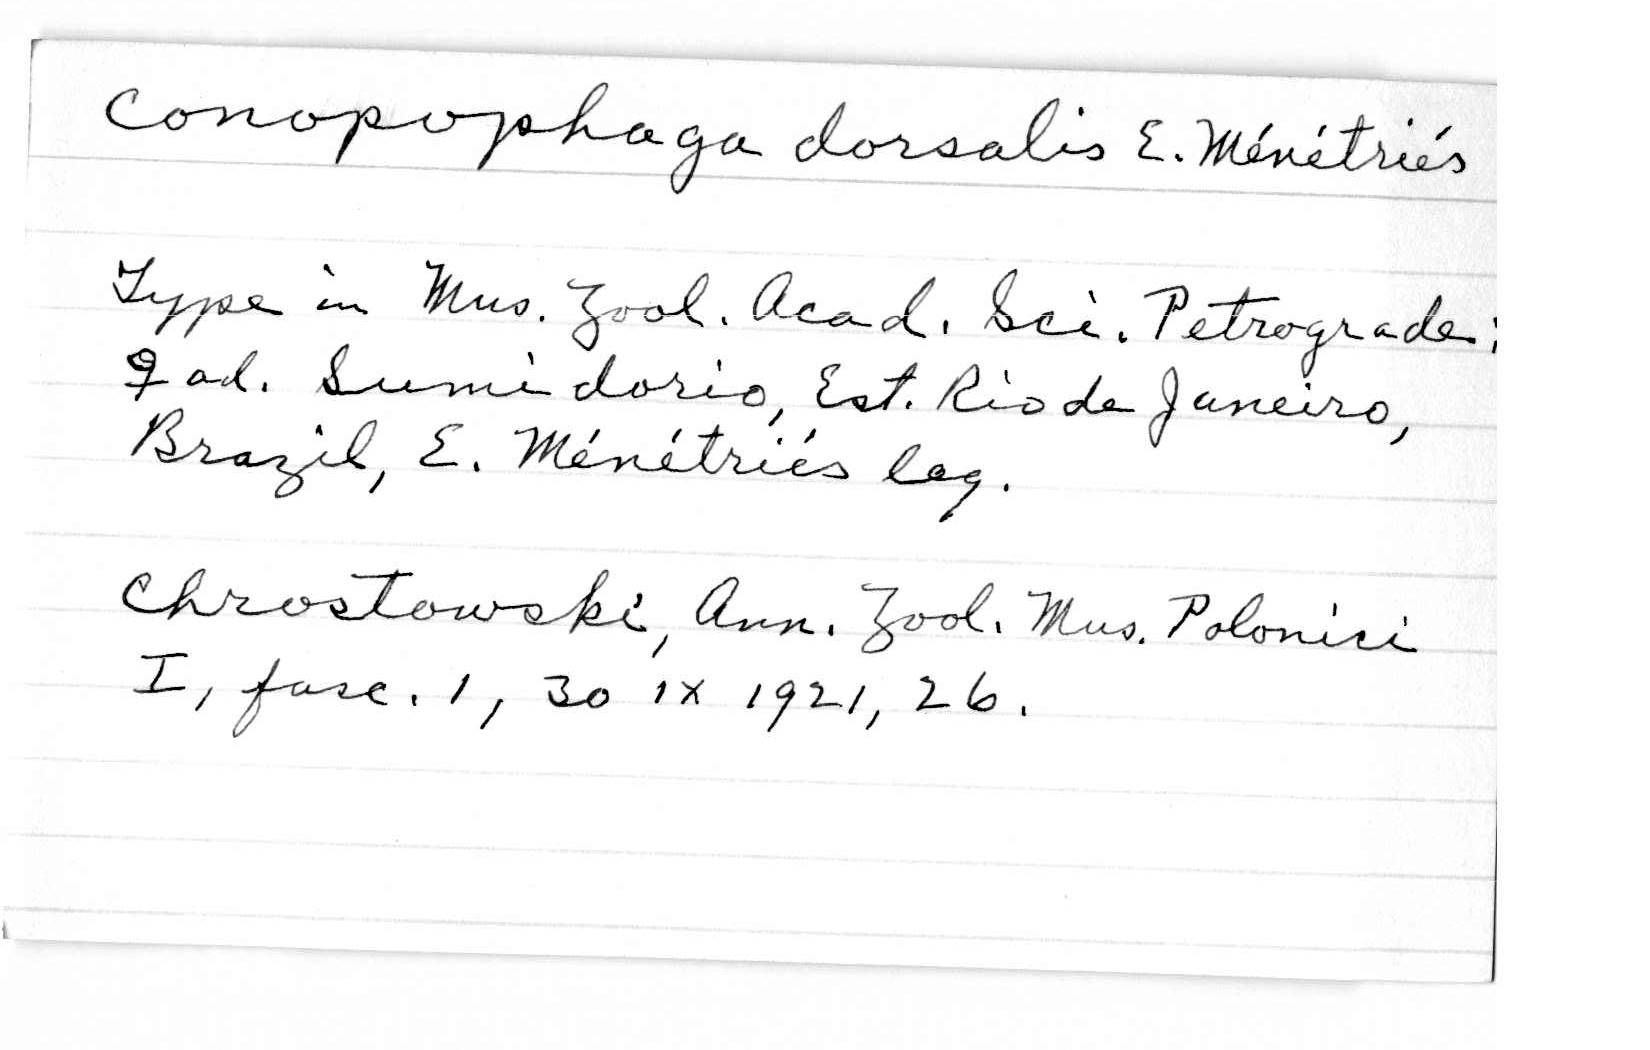 Conopophaga dorsalis E. Ménétriés
Type in Mus. Zool. Acad. Sci. Petrograde:
♀ ad. Sumidorio, Est. Rio de Janeiro,
Brazil, E. Ménétriés leg.
Chrostowski, Ann. Zool. Mus. Polonici
I, fasc. 1, 30 IX 1921, 26.